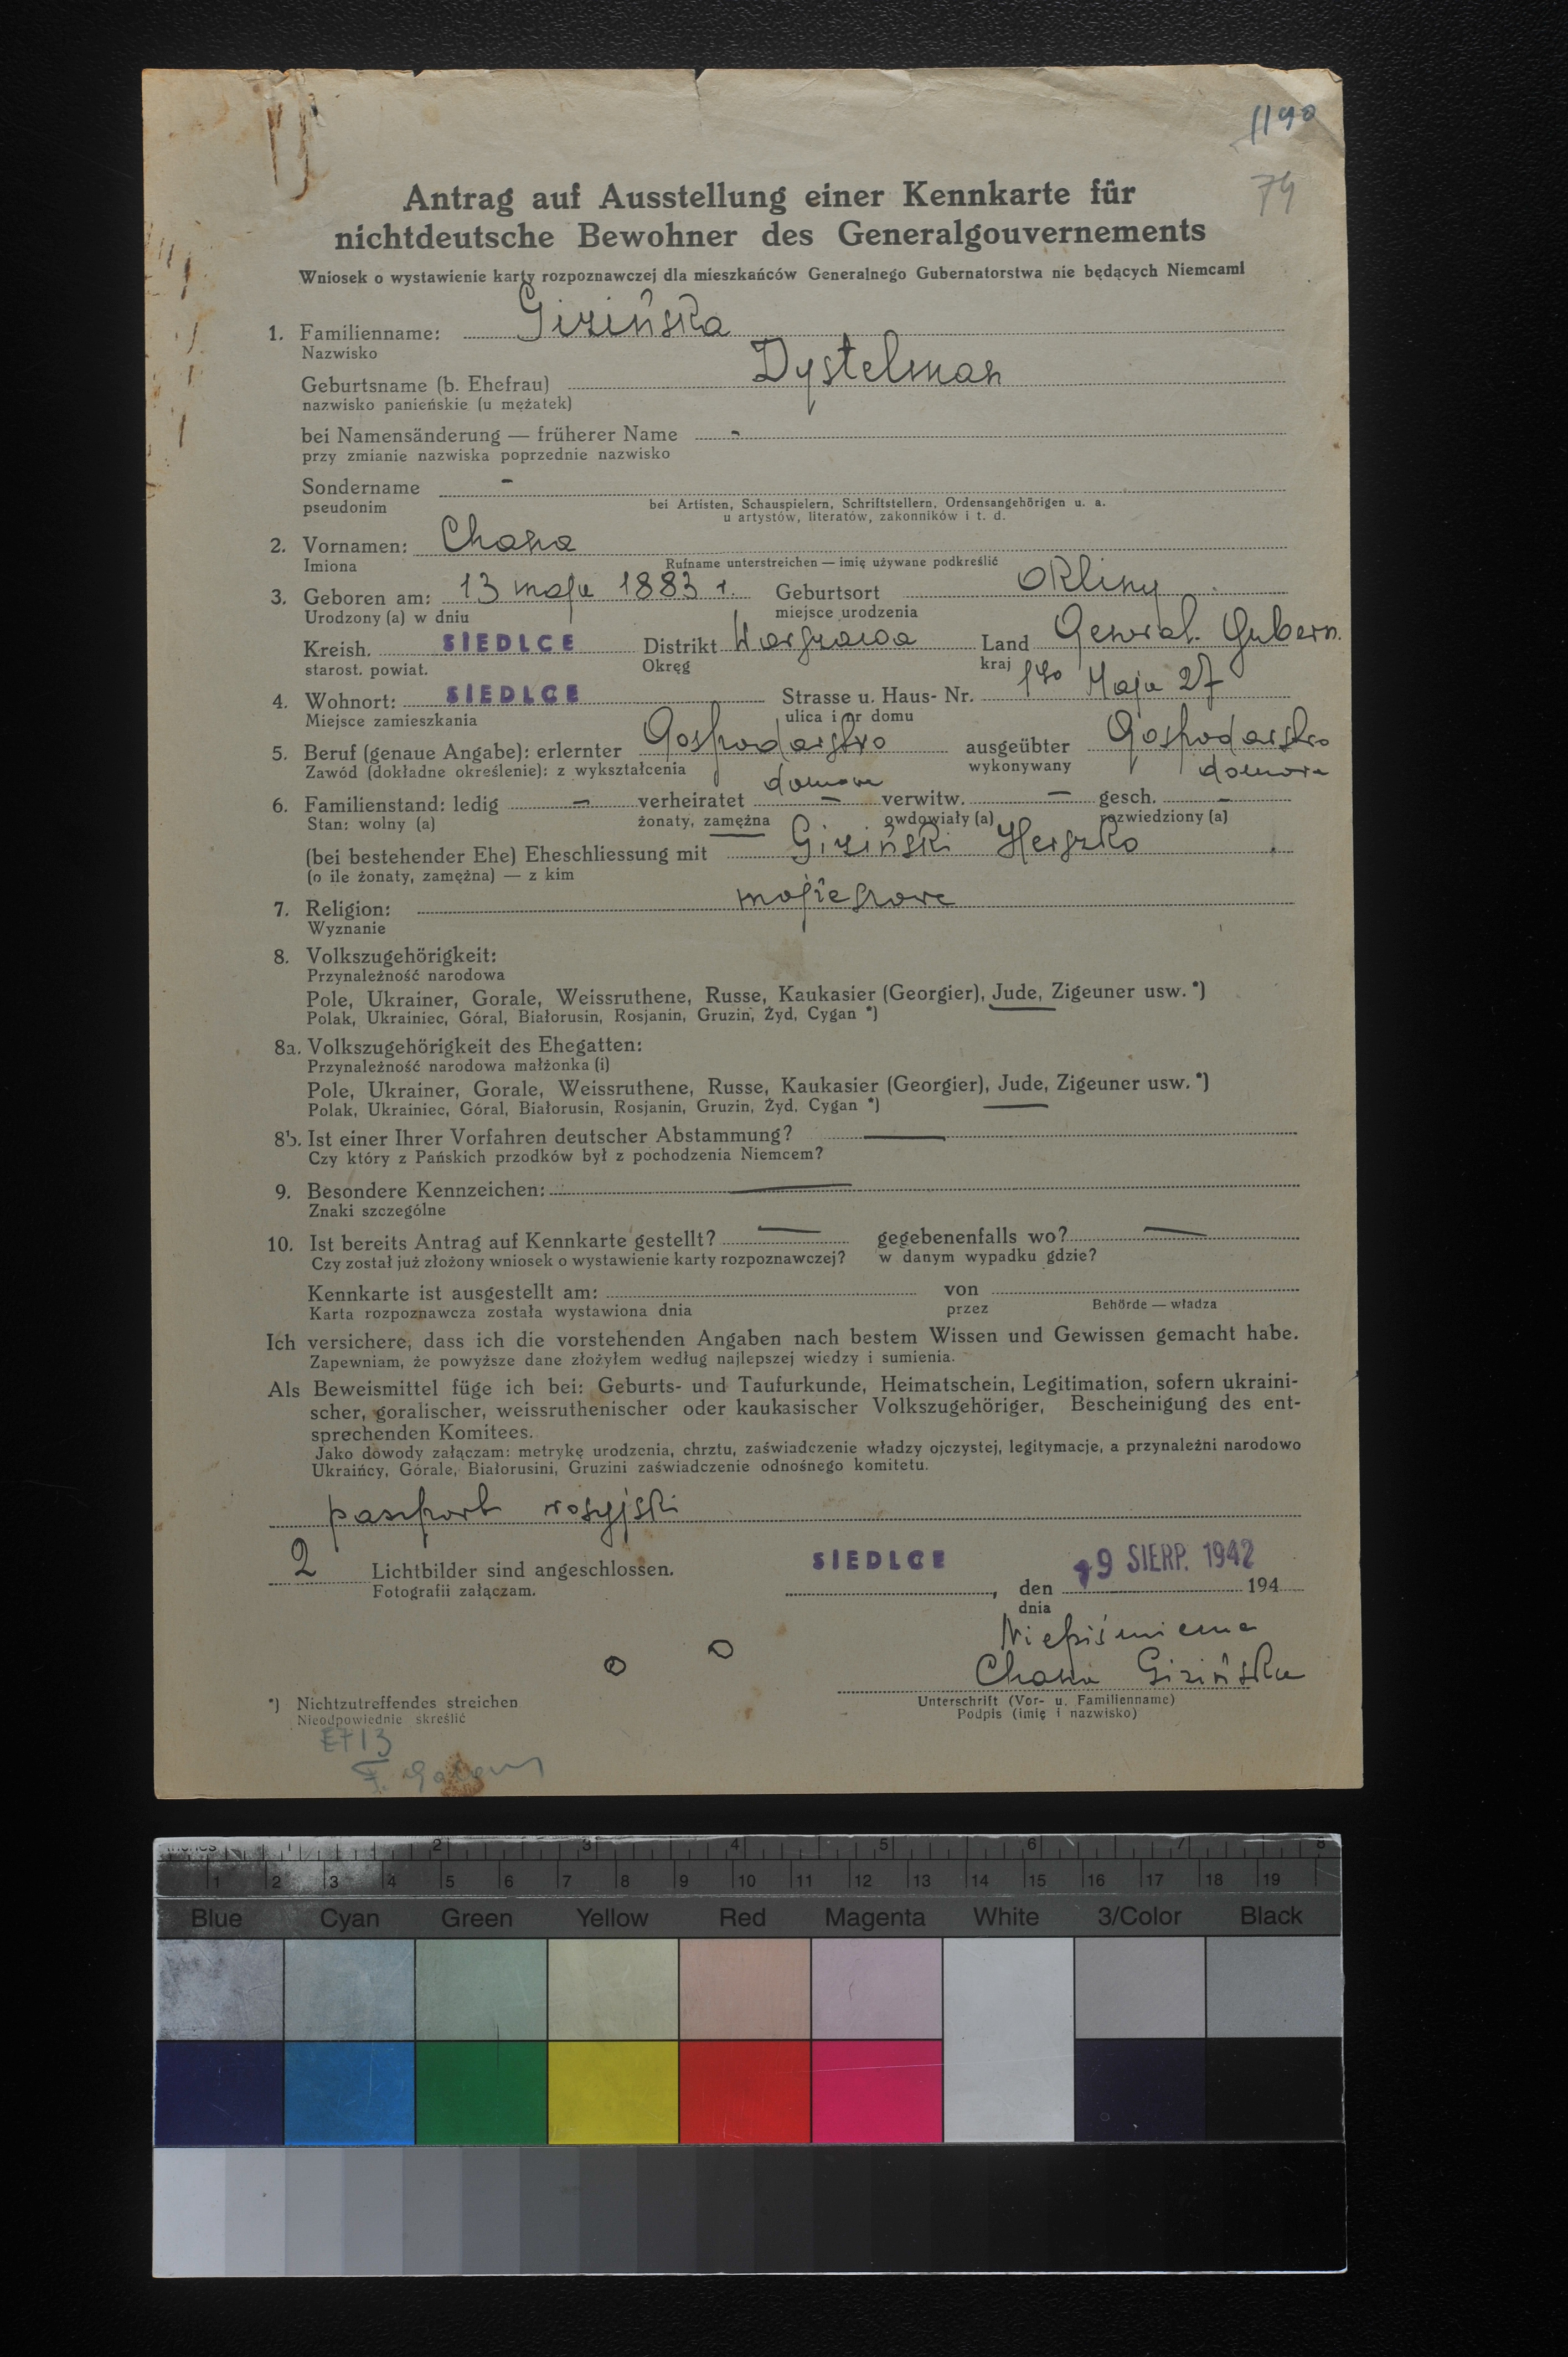 1190
74
Antrag auf Ausstellung einer Kennkarte für
nichtdeutsche Bewohner des Generalgouvernements
Wniosek o wystawienie karty rozpoznawczej dla mieszkańców Generalnego Gubernatorstwa nie będących Niemcami
1. Familienname: Gizińska
Nazwisko
Geburtsname (b. Ehefrau) Dystelman
nazwisko panieńskie (u mężatek)
bei Namensänderung — früherer Name -
przy zmianie nazwiska poprzednie nazwisko
Sondername -
pseudonim
bei Artisten, Schauspielern, Schriftstellern, Ordensangehörigen u. a.
u artystów, literatów, zakonników i t. d.
2. Vornamen: Chana
Imiona Rufname unterstreichen — imię używane podkreślić
3. Geboren am: 13 maja 1883 r. Geburtsort Okliny
Urodzony (a) w dniu miejsce urodzenia
Kreish. SIEDLCE Distrikt Warszawa Land General. Gubern.
starost. powiat. Okręg kraj
4. Wohnort: SIEDLCE Strasse u. Haus- Nr. 1go Maja 27
Miejsce zamieszkania ulica i nr domu
5. Beruf (genaue Angabe): erlernter Gospodarstwo ausgeübter Gospodarstwo
Zawód (dokładne określenie): z wykształcenia domowe wykonywany domowe
6. Familienstand: ledig - verheiratet - verwitw. - gesch. -
Stan: wolny (a) żonaty, zamężna owdowiały (a) rozwiedziony (a)
(bei bestehender Ehe) Eheschliessung mit Giziński Herszko
(o ile żonaty, zamężna) — z kim
7. Religion: mojżeszowe
Wyznanie
8. Volkszugehörigkeit:
Przynależność narodowa
Pole, Ukrainer, Gorale, Weissruthene, Russe, Kaukasier (Georgier), Jude, Zigeuner usw. *)
Polak, Ukrainiec, Góral, Białorusin, Rosjanin, Gruzin, Żyd, Cygan *)
8a. Volkszugehörigkeit des Ehegatten:
Przynależność narodowa małżonka (i)
Pole, Ukrainer, Gorale, Weissruthene, Russe, Kaukasier (Georgier), Jude, Zigeuner usw. *)
Polak, Ukrainiec, Góral, Białorusin, Rosjanin, Gruzin, Żyd. Cygan *)
8b. Ist einer Ihrer Vorfahren deutscher Abstammung? —
Czy który z Pańskich przodków był z pochodzenia Niemcem?
9. Besondere Kennzeichen: —
Znaki szczególne
10. Ist bereits Antrag auf Kennkarte gestellt? — gegebenenfalls wo? —
Czy został już złożony wniosek o wystawienie karty rozpoznawczej? w danym wypadku gdzie?
Kennkarte ist ausgestellt am: von
Karta rozpoznawcza została wystawiona dnia przez Behörde — władza
Ich versichere, dass ich die vorstehenden Angaben nach bestem Wissen und Gewissen gemacht habe.
Zapewniam, że powyższe dane złożyłem według najlepszej wiedzy i sumienia.
Als Beweismittel füge ich bei: Geburts- und Taufurkunde, Heimatschein, Legitimation, sofern ukraini-
scher, goralischer, weissruthenischer oder kaukasischer Volkszugehöriger, Bescheinigung des ent-
sprechenden Komitees.
Jako dowody załączam: metrykę urodzenia, chrztu, zaświadczenie władzy ojczystej, legitymacje, a przynależni narodowo
Ukraińcy, Górale, Białorusini, Gruzini zaświadczenie odnośnego komitetu.
paszport rosyjski
2 Lichtbilder sind angeschlossen.
Fotografii załączam.
SIEDLCE, den 19 SIERP. 1942 194
dnia
Niepiśmienna
Chana Gizińska
Unterschrift (Vor- u. Familienname)
Podpis (imię i nazwisko)
*) Nichtzutreffendes streichen
Nieodpowiednie skreślić
E713
inches 1 2 3 4 5 6 7 8
1 2 3 4 5 6 7 8 9 10 11 12 13 14 15 16 17 18 19
Blue Cyan Green Yellow Red Magenta White 3/Color Black